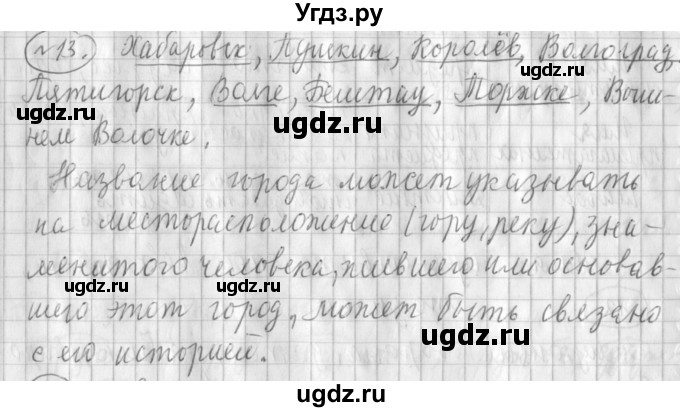 Угдз.ру
№13. Хабаровск, Пушкин, Королёв, Волгоград,
Пятигорск, Волге, Бештау, Торжке, Выш-
нем Волочке.
Название города может указывать
на месторасположение (гору, реку), зна-
менитого человека, жившего или основав-
шего этот город, может быть связано
с его историей.
ugdz.ru ugdz.ru
ugdz.ru
ugdz.ru
ugdz.ru
ugdz.ru
ugdz.ru ugdz.ru
ugdz.ru